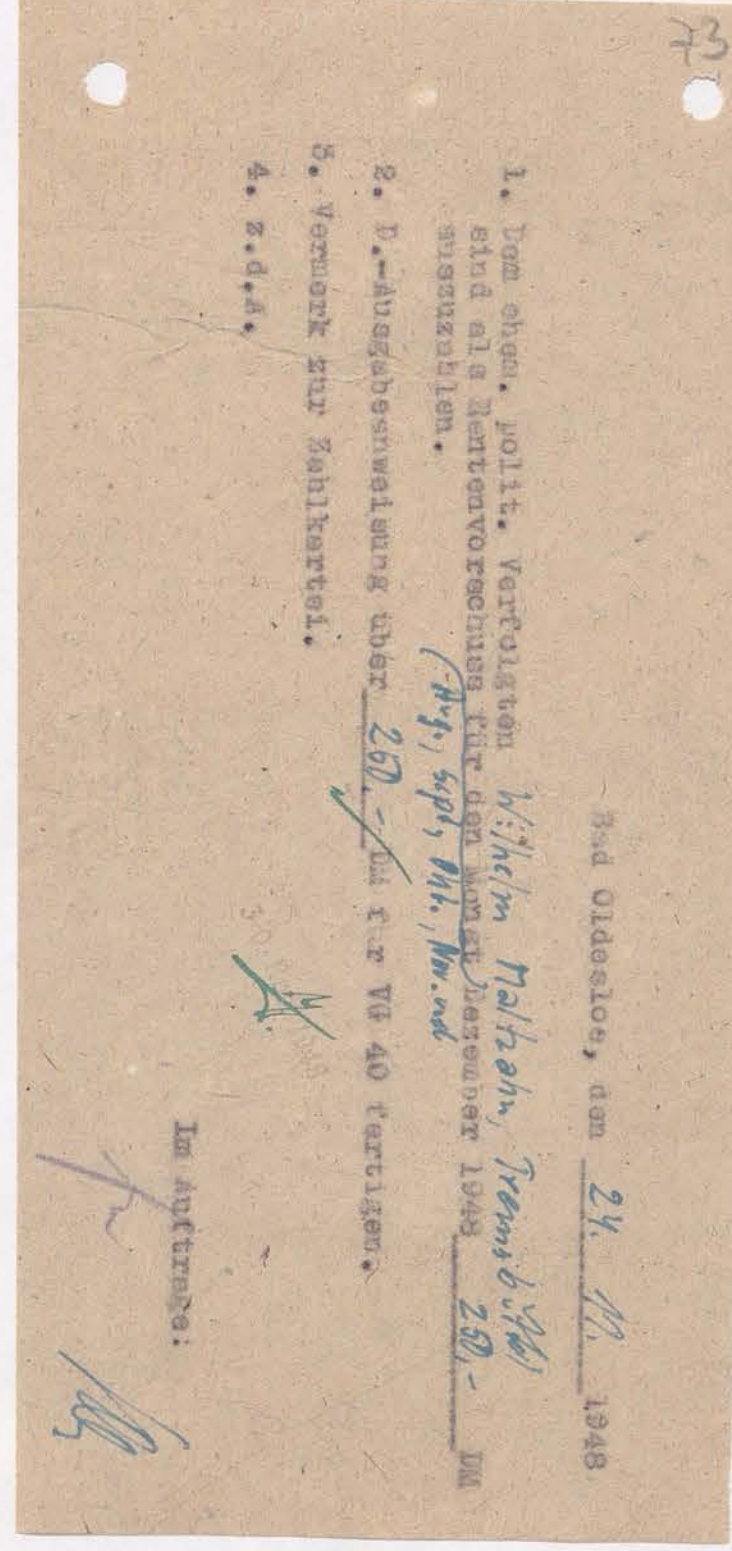 73
Bad Oldesloe, den 24. 11. 1948
1. Dem ehem. polit. Verfolgten Wilhelm Maltzahn, Tremsbüttel
sind als Rentenvorschuss für den Monat Dezember 1948 250,- DM
auszuzahlen. (Aug., Sept., Okt., Nov. und
2. D.-Ausgabeanweisung über 250.- DM für VG 40 fertigen.
3. Vermerk zur Zahlkartei.
4. z.d.A.
Im Auftrage: